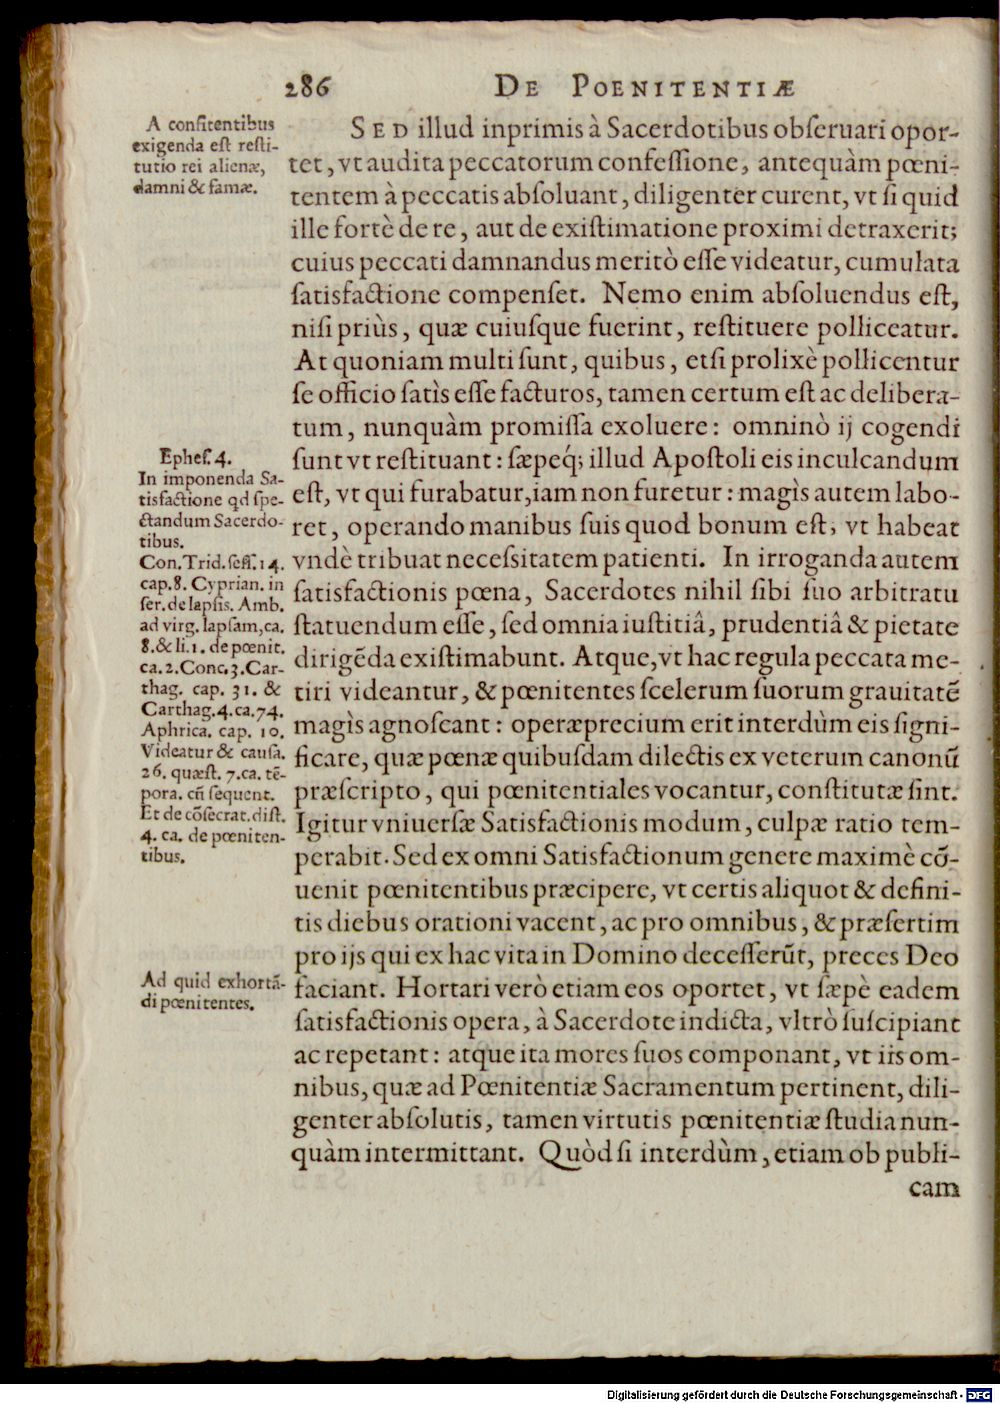 286 DE POENITENTIÆ
A confitentibus
exigenda est resti-
tutio rei alienæ,
damni & famæ.
SED illud inprimis à Sacerdotibus obſeruari opor-
tet, vt audita peccatorum confeſſione, antequàm pœni-
tentem à peccatis abſoluant, diligenter curent, vt ſi quid
ille fortè de re, aut de exiſtimatione proximi detraxerit;
cuius peccati damnandus meritò eſſe videatur, cumulata
ſatisfactione compenſet. Nemo enim abſoluendus eſt,
niſi priùs, quæ cuiuſque fuerint, reſtituere polliceatur.
At quoniam multi ſunt, quibus, etſi prolixè pollicentur
ſe officio ſatìs eſſe facturos, tamen certum eſt ac delibera-
tum, nunquàm promiſſa exoluere: omninò ij cogendi
ſunt vt reſtituant: ſæpeq́; illud Apoſtoli eis inculcandum
eſt, vt qui furabatur, iam non furetur: magìs autem labo-
ret, operando manibus ſuis quod bonum eſt, vt habeat
vndè tribuat neceſsitatem patienti. In irroganda autem
ſatisfactionis pœna, Sacerdotes nihil ſibi ſuo arbitratu
ſtatuendum eſſe, ſed omnia iuſtitiâ, prudentiâ & pietate
dirigēda exiſtimabunt. Atque, vt hac regula peccata me-
tiri videantur, & pœnitentes ſcelerum ſuorum grauitatē
magìs agnoſcant: operæprecium erit interdùm eis ſigni-
ficare, quæ pœnæ quibuſdam dilectis ex veterum canonū
præſcripto, qui pœnitentiales vocantur, conſtitutæ ſint.
Igitur vniuerſæ Satisfactionis modum, culpæ ratio tem-
perabit. Sed ex omni Satisfactionum genere maximè cō-
uenit pœnitentibus præcipere, vt certis aliquot & defini-
tis diebus orationi vacent, ac pro omnibus, & præſertim
pro ijs qui ex hac vita in Domino deceſſerūt, preces Deo
faciant. Hortari verò etiam eos oportet, vt ſæpè eadem
ſatisfactionis opera, à Sacerdote indicta, vltrò ſuſcipiant
ac repetant: atque ita mores ſuos componant, vt iis om-
nibus, quæ ad Pœnitentiæ Sacramentum pertinent, dili-
genter abſolutis, tamen virtutis pœnitentiæ ſtudia nun-
quàm intermittant. Quòd ſi interdùm, etiam ob publi-
cam
Epheſ. 4.
In imponenda Sa-
tisfactione qd ſpe-
ctandum Sacerdo-
tibus.
Con. Trid. ſeſſ. 14.
cap. 8. Cyprian. in
ſer. de lapſis. Amb.
ad virg. lapſam, ca.
8. & li. 1. de pœnit.
ca. 2. Conc. 3. Car-
thag. cap. 31. &
Carthag. 4. ca. 74.
Aphrica. cap. 10.
Videatur & cauſa.
26. quæſt. 7. ca. tē-
pora. cū ſequent.
Et de cōſecrat. diſt.
4. ca. de pœniten-
tibus.
Ad quid exhortā-
di pœnitentes.
Digitalisierung gefördert durch die Deutsche Forschungsgemeinschaft - DFG